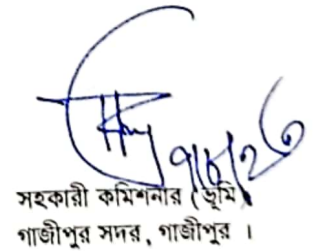 সহকারী কমিশনার (ভূমি)
গাজীপুর সদর, গাজীপুর ।